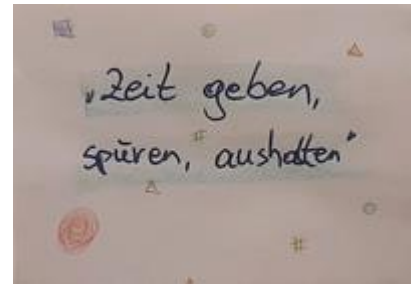 „Zeit geben,
spüren, aushalten“